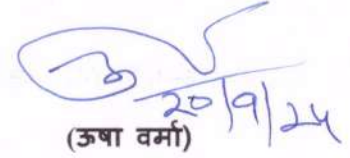 20/9/24
(ऊषा वर्मा)